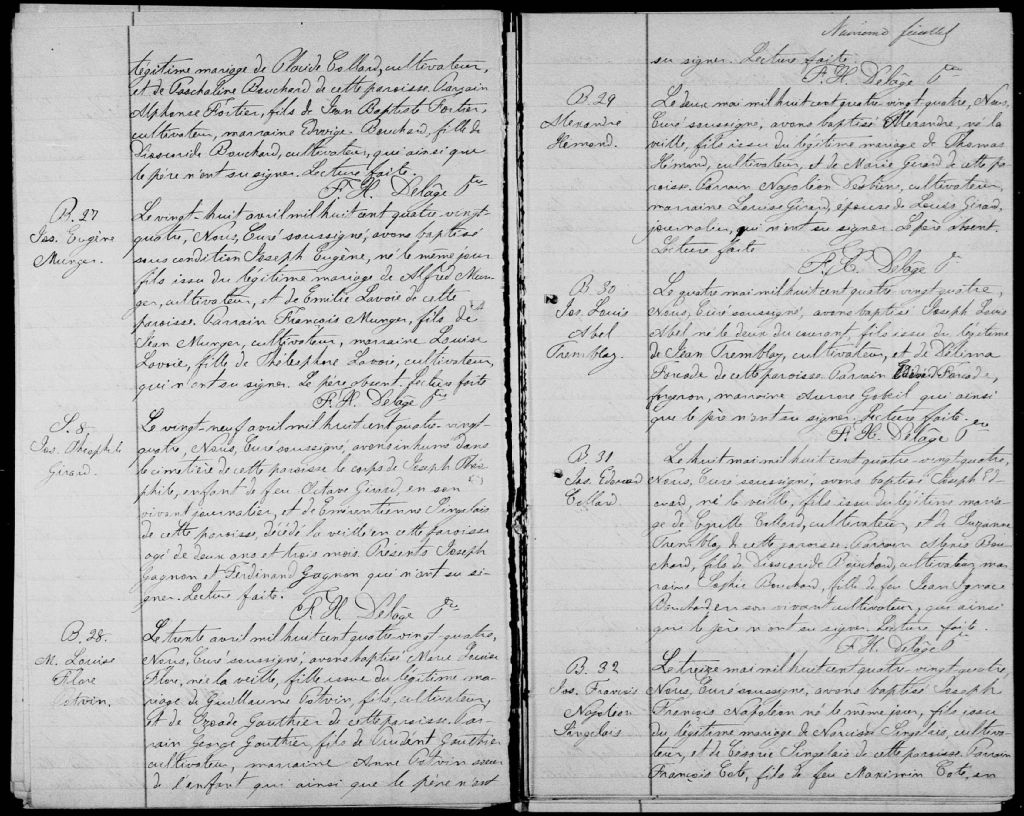 légitime mariage de Placide Collard, cultivateur,
et de Paschaline Bouchard de cette paroisse. Parrain
Alphonse Fortier, fils de Jean Baptiste Fortier
cultivateur, marraine Edwige Bouchard, fille de
Dioscoride Bouchard, cultivateur, qui ainsi que
le père n'ont su signer. Lecture faite.
F. H. Delâge Ptre
B. 27
Jos. Eugène
Munger.
Le vingt-huit avril mil huit cent quatre-vingt-
quatre, Nous, Curé soussigné, avons baptisé
sous condition Joseph Eugène, né le même jour
fils issu du légitime mariage de Alfred Mun-
ger, cultivateur, et de Emilie Lavoie de cette
paroisse. Parrain François Munger, fils de
Jean Munger, cultivateur, marraine Louise
Lavoie, fille de Thélesphore Lavoie, cultivateur,
qui n'ont su signer. Le père absent. Lecture faite
F. H. Delâge Ptre
S. 8
Jos. Théophile
Girard.
Le vingt-neuf avril mil huit cent quatre-vingt-
quatre, Nous, Curé soussigné, avons inhumé dans
le cimetière de cette paroisse le corps de Joseph Théo-
phile, enfant de feu Octave Girard, en son
vivant journalier, et de Emérentienne Singelais
de cette paroisse, décédé la veille en cette paroisse
agé de deux ans et trois mois. Présents Joseph
Gagnon et Ferdinand Gagnon qui n'ont su si-
gner. Lecture faite.
F. H. Delâge Ptre
B. 28.
M. Louise
Flore
Potvin.
Le trente avril mil huit cent quatre-vingt-quatre,
Nous, Curé soussigné, avons baptisé Marie Louise
Flore, née la veille, fille issue du légitime ma-
riage de Guillaume Potvin, fils, cultivateur,
et de Gauthier de cette paroisse. Par-
rain George Gauthier, fils de Prudent Gauthier
cultivateur, marraine Anne Potvin soeur
de l'enfant qui ainsi que le père n'ont
su signer. Lecture faite
F. H. Delâge Ptre
B. 29
Alexandre
Hémond.
Le deux mai mil huit cent quatre vingt quatre, Nous,
Curé soussigné, avons baptisé Alexandre, né la
veille, fils issu du légitime mariage de Thomas
Hémond, cultivateur, et de Marie Girard de cette pa-
roisse. Parrain Napoléon cultivateur,
marraine Louise Girard, épouse de Louis Girard,
journalier, qui n'ont su signer. Le père absent.
Lecture faite
F. H. Delâge Ptre
B. 30
Jos. Louis
Abel
Tremblay.
Le quatre mai mil huit cent quatre-vingt quatre,
Nous, Curé soussigné, avons baptisé Joseph Louis
Abel né le deux du courant, fils issu du légitime
de Jean Tremblay, cultivateur, et de Délima
de cette paroisse. Parrain
forgeron, marraine Aurore Gobeil qui ainsi
que le père n'ont su signer. Lecture faite.
F. H. Delâge Ptre
B. 31
Jos. Edouard
Collard
Le huit mai mil huit cent quatre-vingt quatre,
Nous, Curé soussigné, avons baptisé Joseph Ed-
ouard, né la veille, fils issu du légitime maria-
ge de Collard, cultivateur, et de Suzanne
Tremblay de cette paroisse. Parrain Alexis Bou-
chard, fils de Dioscoride Bouchard, cultivateur, mar-
raine Sophie Bouchard, fille de feu Jean Ignace
Bouchard, en son vivant cultivateur, qui ainsi
que le père n'ont su signer. Lecture faite.
F. H. Delâge Ptre
B. 32
Jos. François
Napoléon
Singelais
Le treize mai mil huit cent quatre-vingt quatre,
Nous, Curé soussigné, avons baptisé Joseph
François Napoléon né le même jour, fils issu
du légitime mariage de Narcisse Singelais, cultiva-
teur, et de Césarie Singelais de cette paroisse. Parrain
François Coté, fils de feu Maximin Coté, en